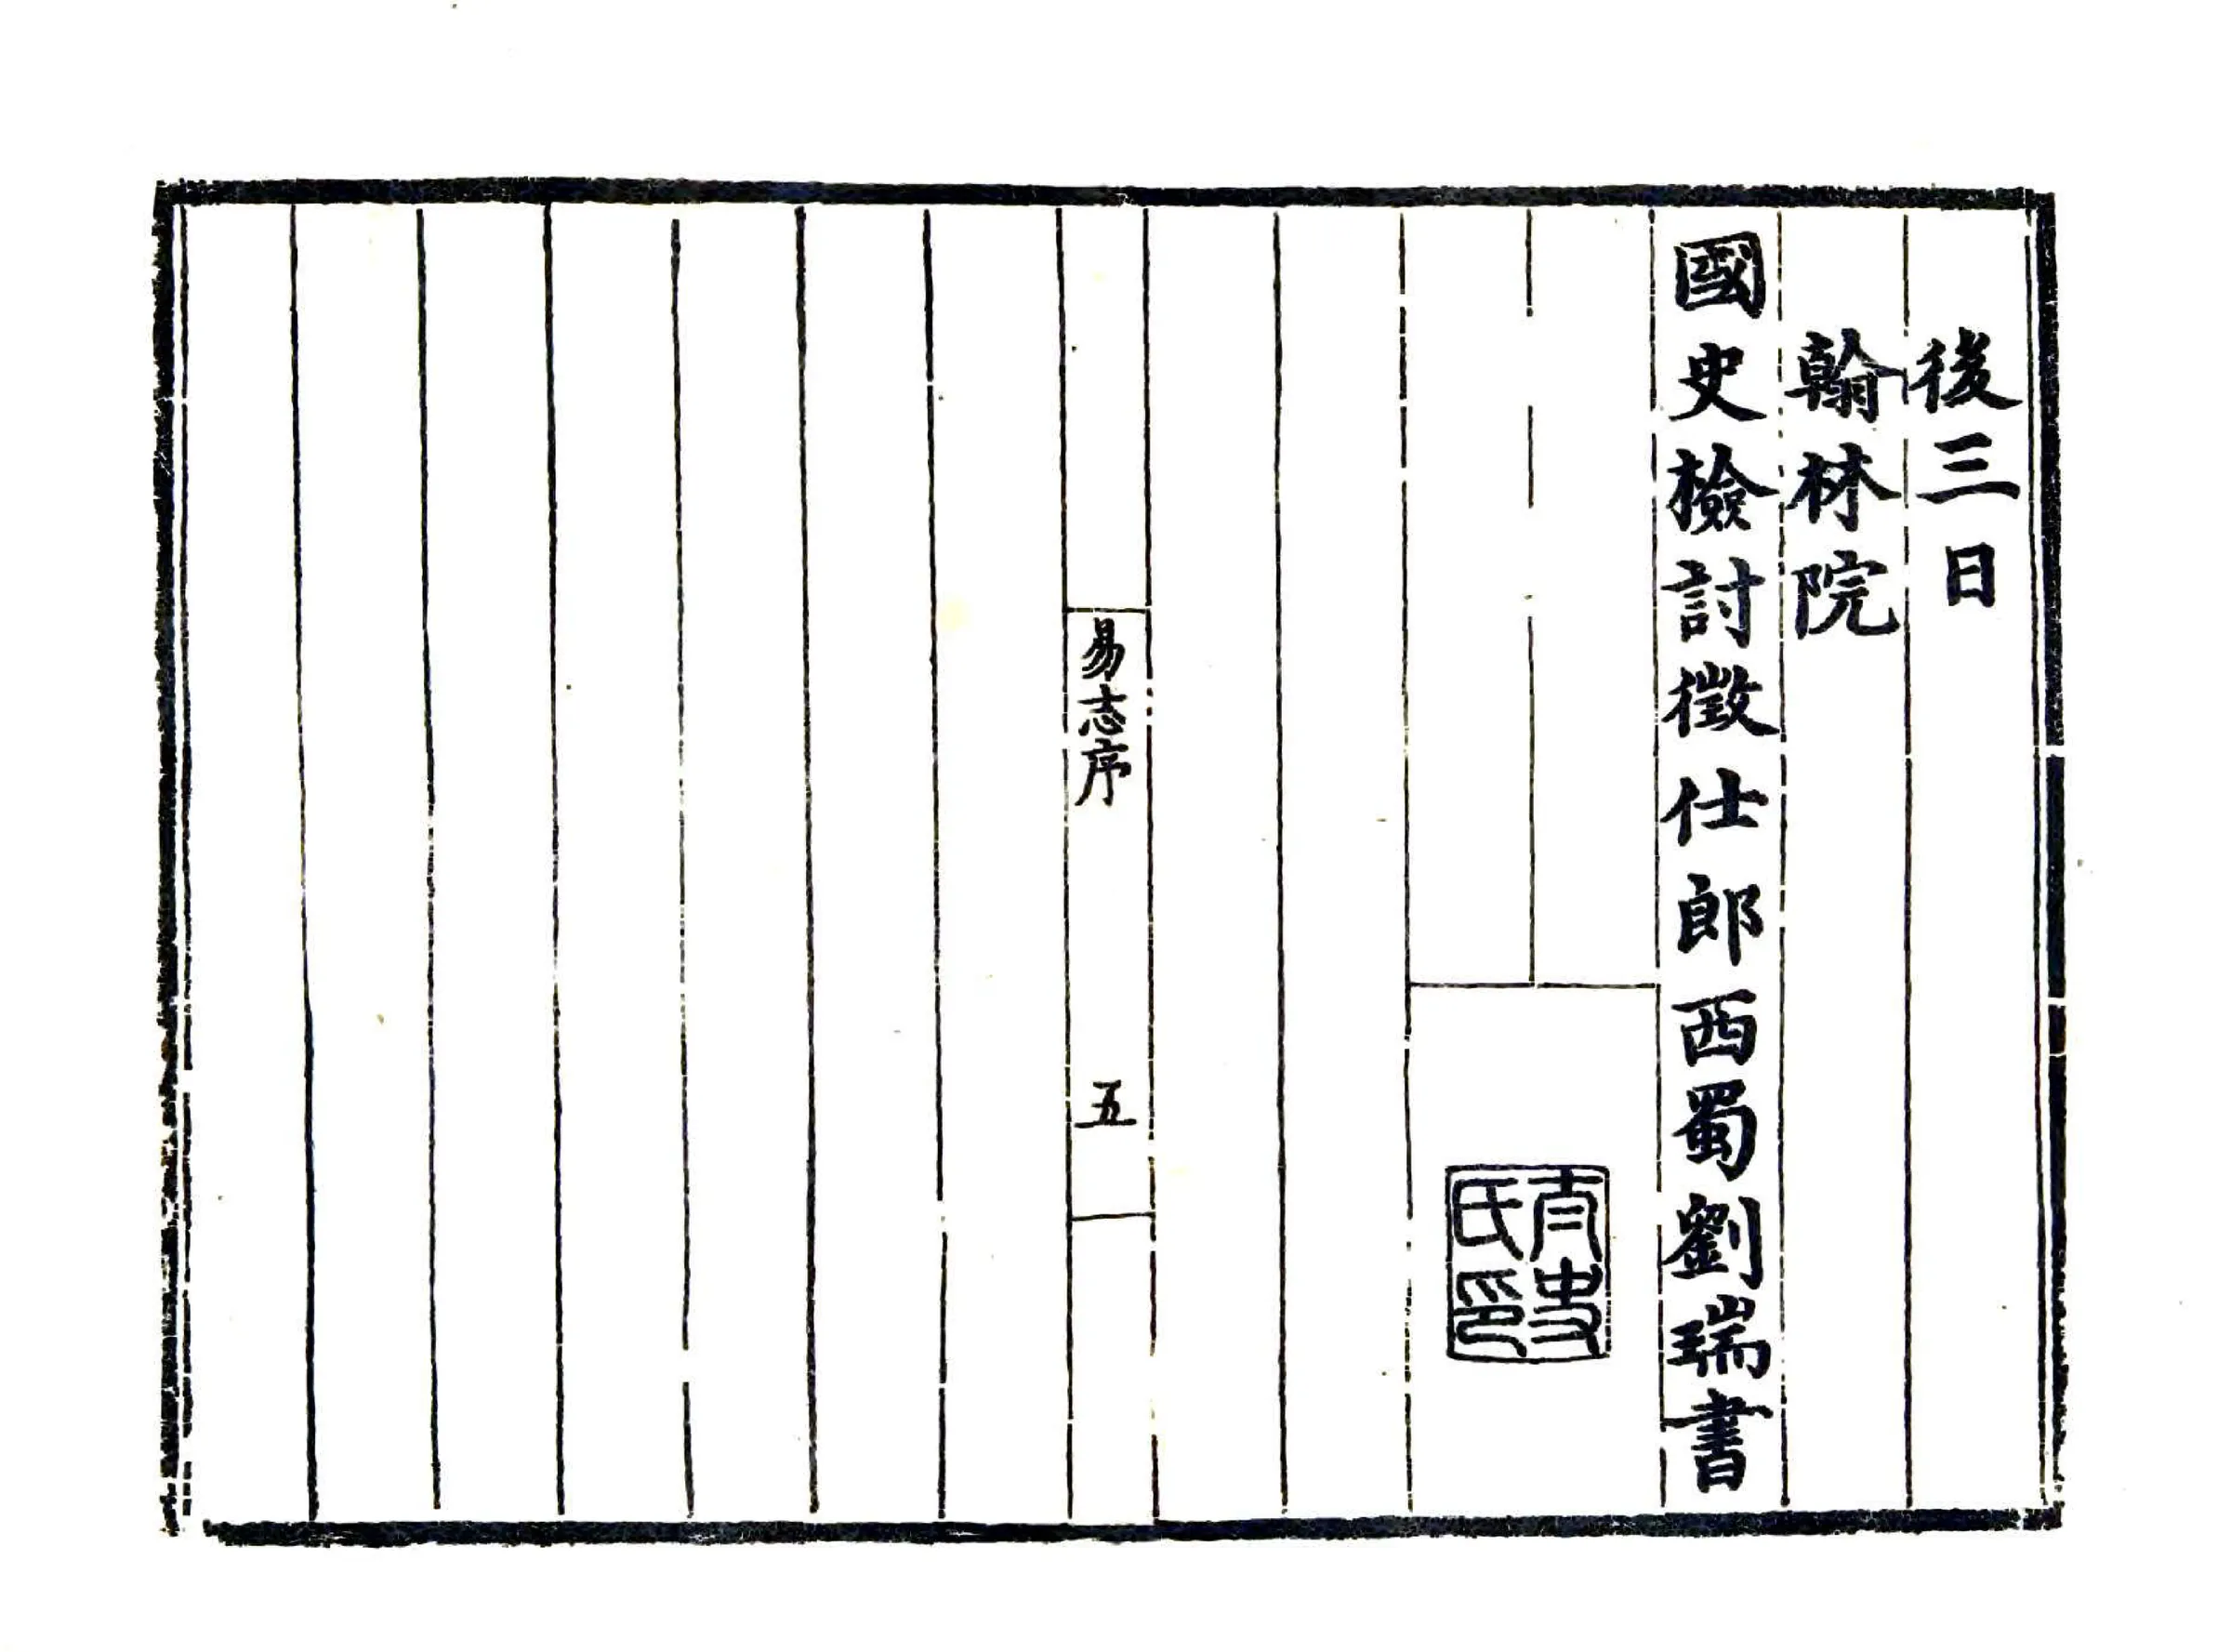 後三日
翰林院
國史檢討徵仕郎西蜀劉瑞書
氏印
易志序
五